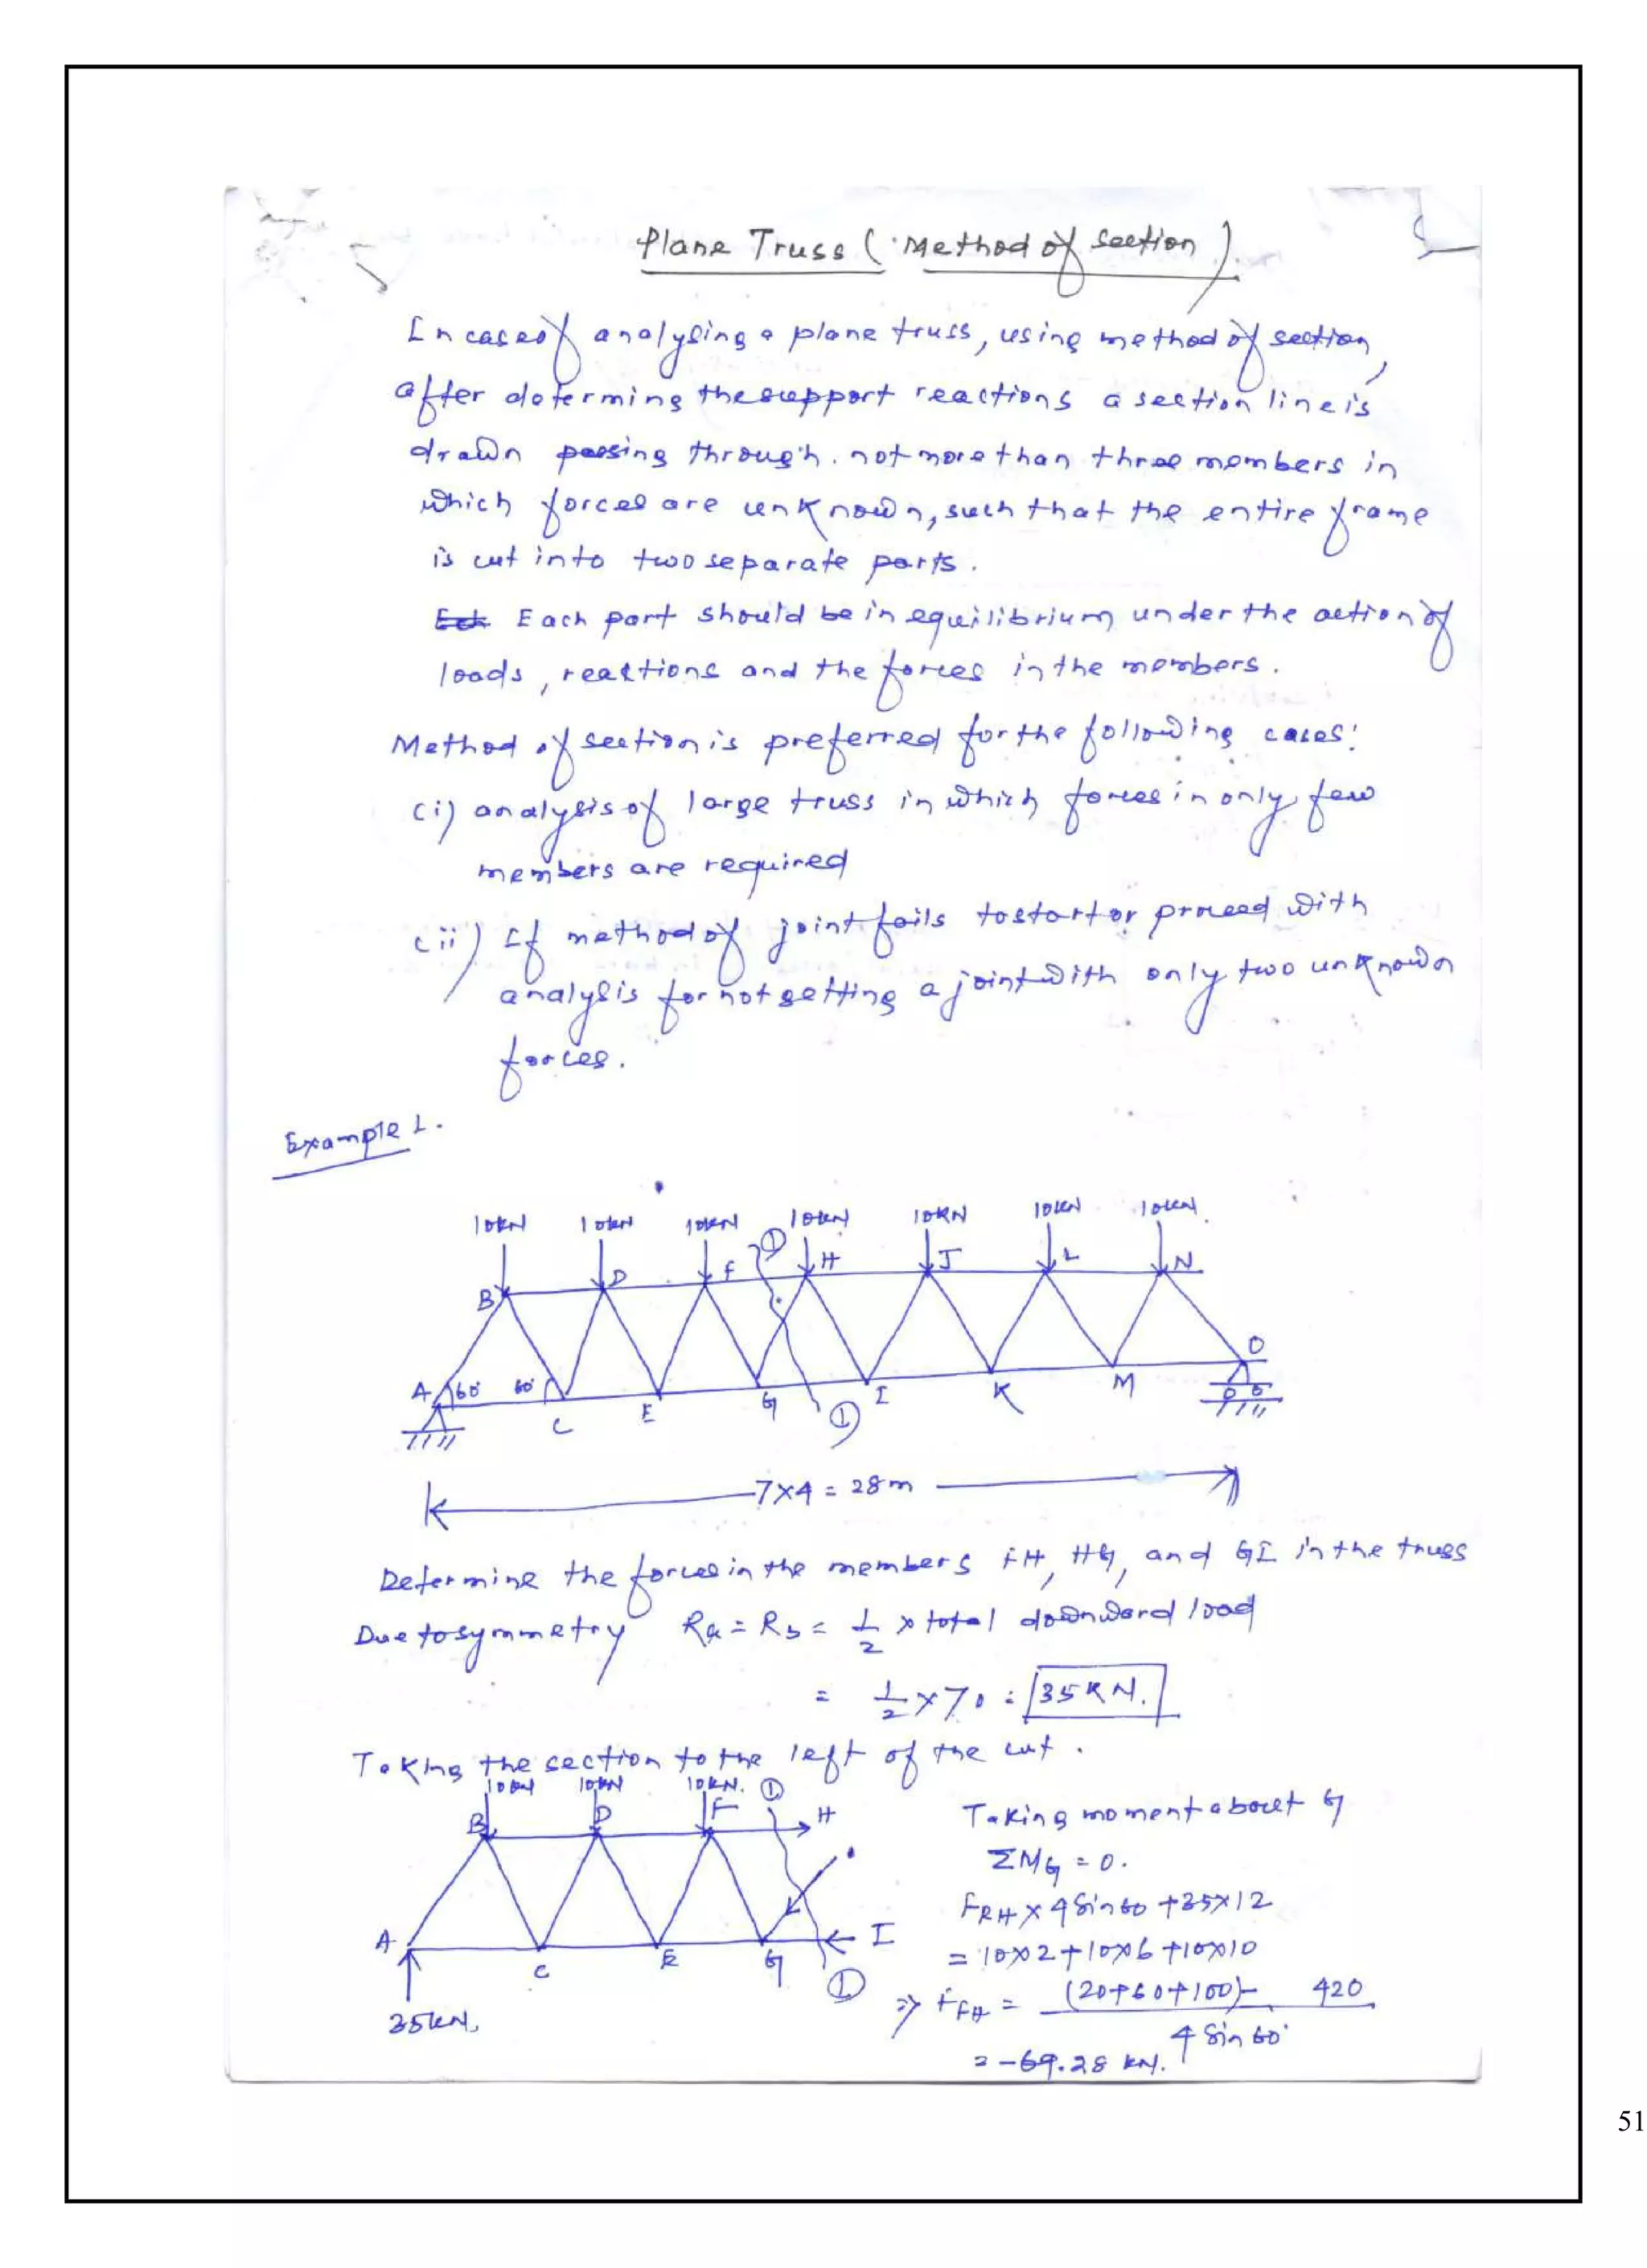 Plane Truss (Method of section)
In case of analysing a plane truss, using method of section,
after determing the support reactions a section line is
drawn passing through not more than three members in
which forces are unknown, such that the entire frame
is cut into two separate parts.
Each part should be in equilibrium under the action of
loads, reactions and the forces in the members.
Method of section is preferred for the following cases:
(i) analysis of large truss in which forces in only few
members are required
(ii) If method of joint fails to start or proceed with
analysis for not getting a joint with only two unknown
forces.
Example 1.
10kN 10kN 10kN 10kN 10kN 10kN 10kN
①
B D F H J L N
A 60° 60° C E G I K M O
①
7×4 = 28m
Determine the forces in the members FH, HG, and GI in the truss
Due to symmetry Ra = Rb = 1/2 × total downward load
= 1/2 × 70 = 35KN.
Taking the section to the left of the cut.
10kN 10kN 10kN. ①
B D F H
A C E G I
①
35kN.
Taking moment about G
ΣMG = 0.
FFH × 4 sin 60 + 35×12
= 10×2 + 10×6 + 10×10
⇒ FFH = (20+60+100) - 420
4 sin 60°
= -69.28 kN.
51